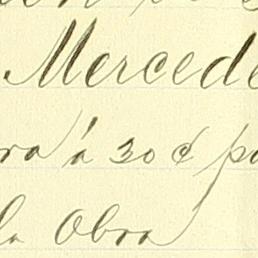 Mercede
ra á 30 ¢ po
la Obra